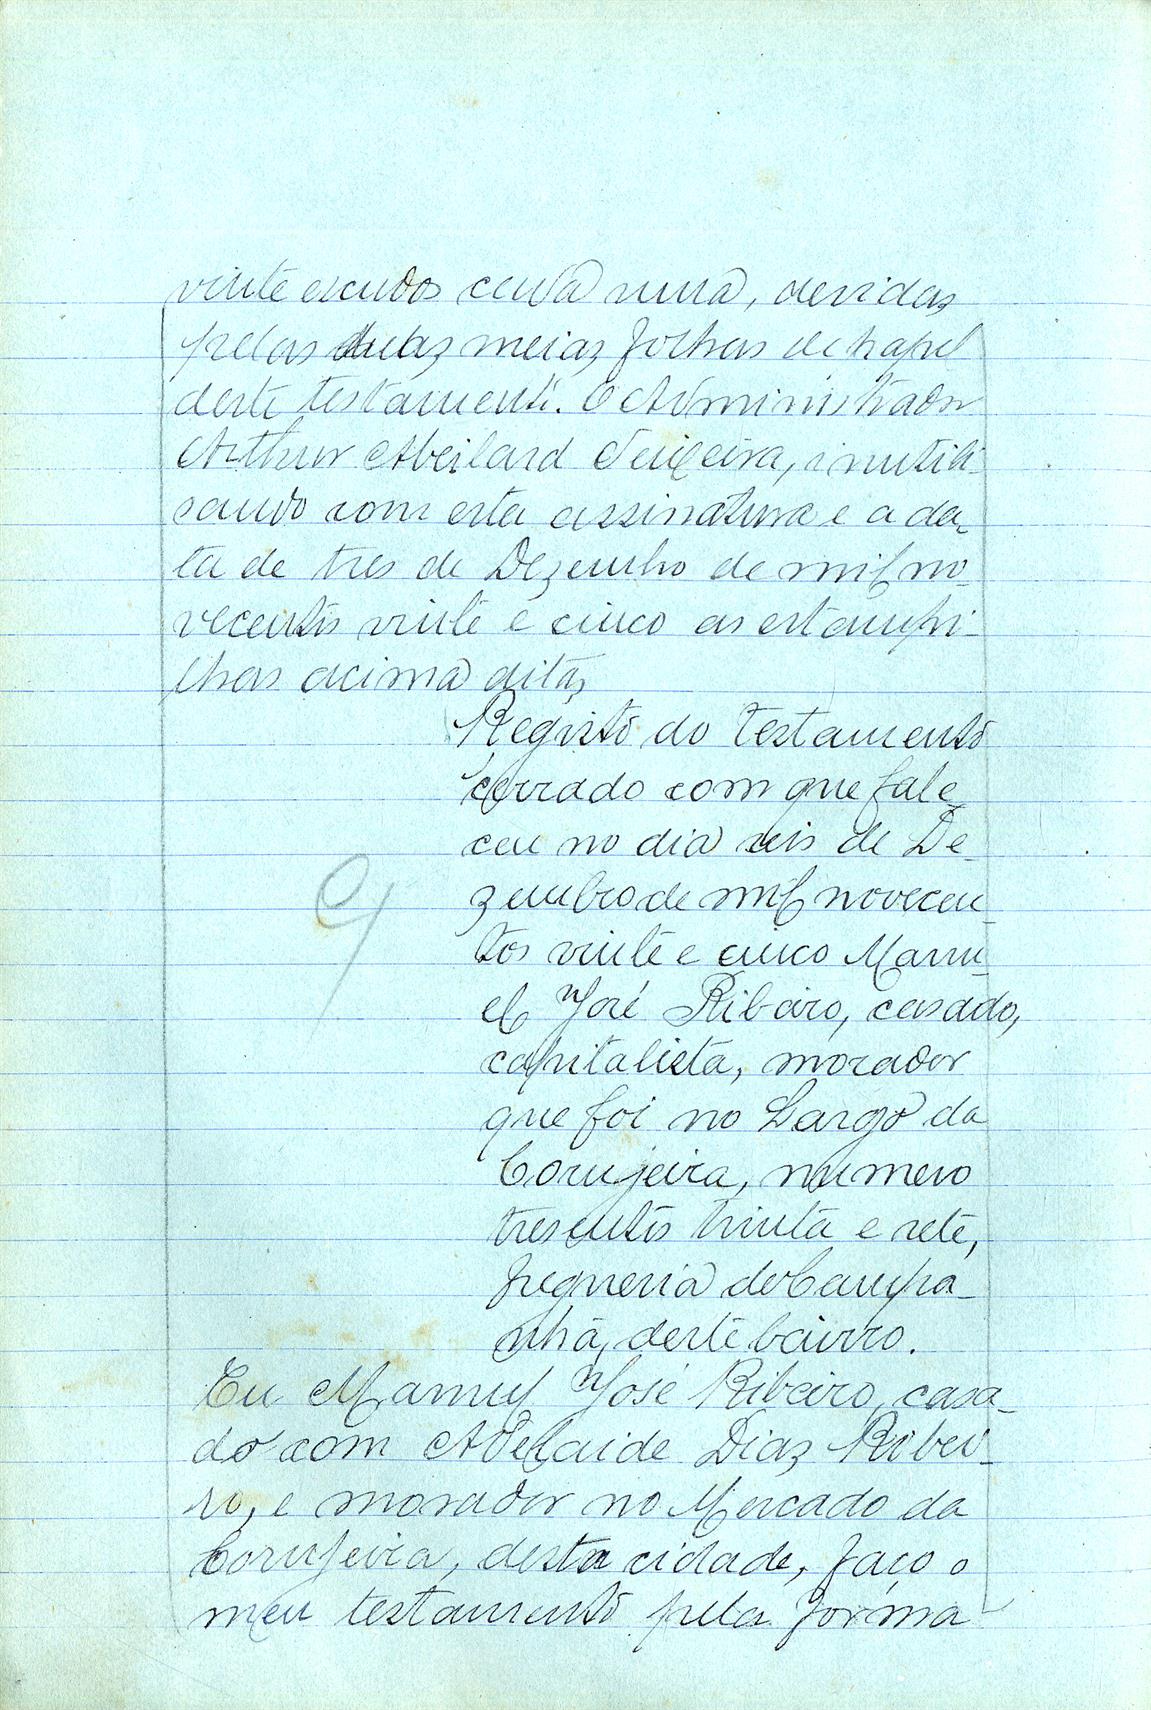 vinte escudos cada uma, devidas
pelas duas meias folhas de papel
deste testamento. O Administrador
Arthur Abeilard Teixeira, inutili-
sando com esta assinatura e a da-
ta de tres de Dezembro de mil no-
vecentos vinte e cinco as estampi-
lhas acima ditas
Registo do testamento
cerrado com que fale-
ceu no dia seis de De-
zembro de mil novecen-
tos vinte e cinco Manu-
el José Ribeiro, casado,
capitalista, morador
que foi no Largo da
Corujeira, numero
tresentos trinta e sete,
freguesia de Campa-
nhã, deste bairro.
Eu Manuel José Ribeiro, casa-
do com Adelaide Dias Ribei-
ro, e morador no Mercado da
Corujeira, desta cidade, faço o
meu testamento pela forma